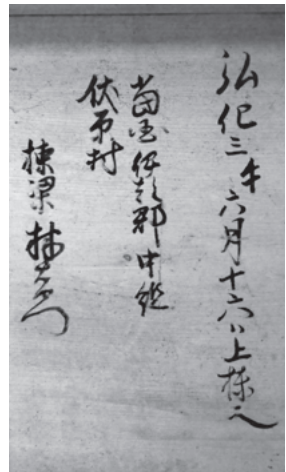 弘化三午六月十六日上棟之
當国伊都郡中組
伏原村
棟梁